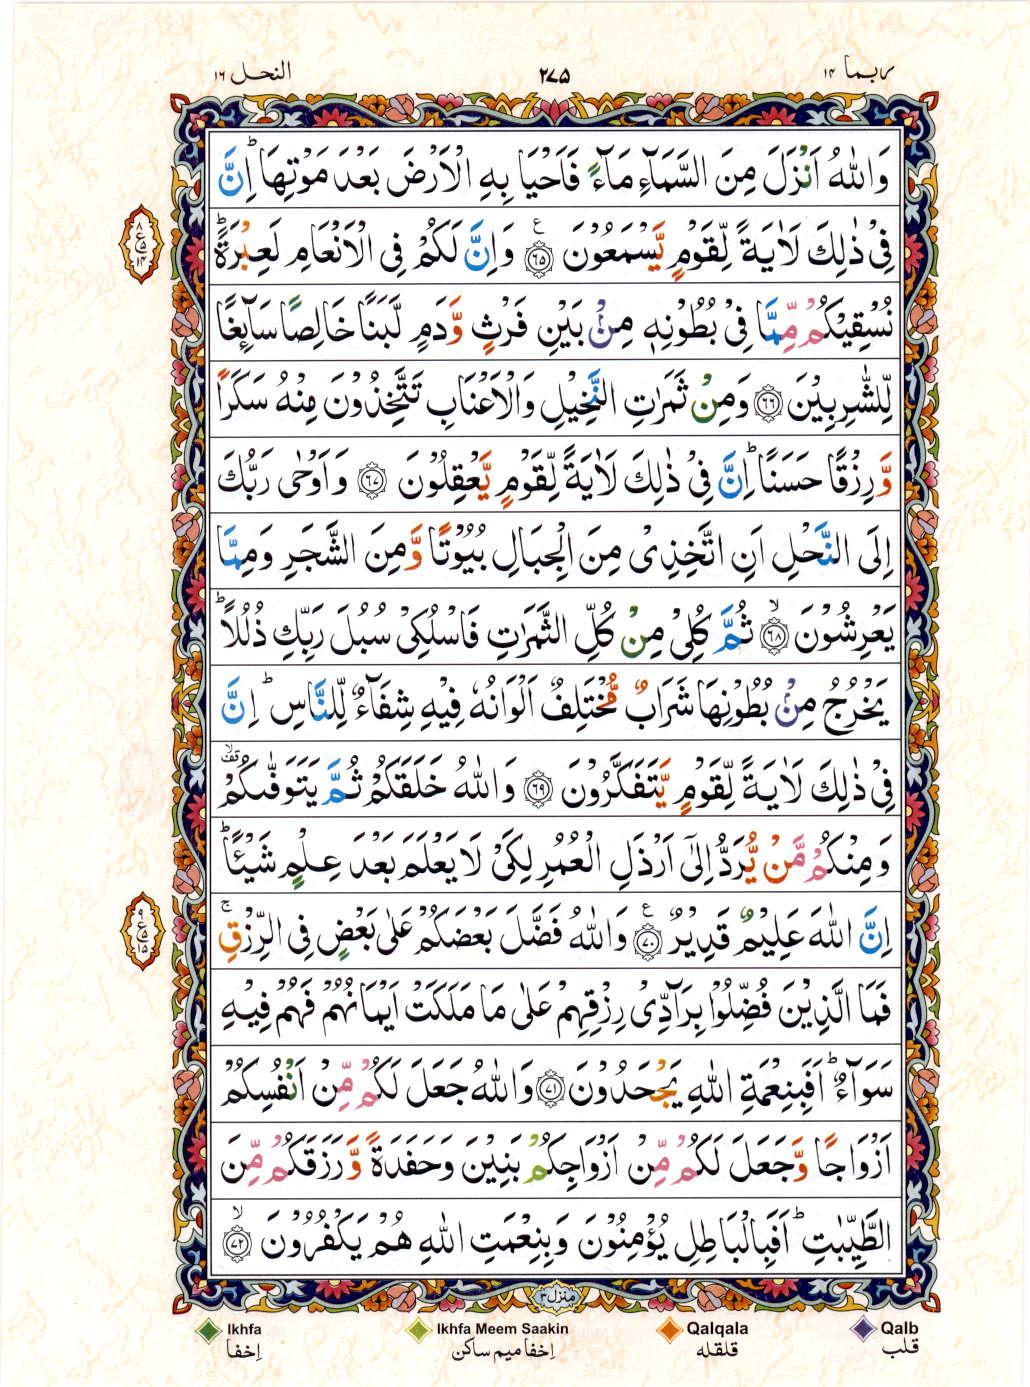 ربما ١٤
٢٧٥
النحل ١٦
وَاللّٰهُ اَنْزَلَ مِنَ السَّمَآءِ مَآءً فَاَحْيَا بِهِ الْاَرْضَ بَعْدَ مَوْتِهَا ؕ اِنَّ
فِىْ ذٰلِكَ لَاٰيَةً لِّقَوْمٍ يَّسْمَعُوْنَ ﴿٦٥﴾ ع وَاِنَّ لَكُمْ فِى الْاَنْعَامِ لَعِبْرَةً ؕ
نُسْقِيْكُمْ مِّمَّا فِىْ بُطُوْنِهٖ مِنْۢ بَيْنِ فَرْثٍ وَّدَمٍ لَّبَنًا خَالِصًا سَآئِغًا
لِّلشّٰرِبِيْنَ ﴿٦٦﴾ وَمِنْ ثَمَرٰتِ النَّخِيْلِ وَالْاَعْنَابِ تَتَّخِذُوْنَ مِنْهُ سَكَرًا
وَّرِزْقًا حَسَنًا ؕ اِنَّ فِىْ ذٰلِكَ لَاٰيَةً لِّقَوْمٍ يَّعْقِلُوْنَ ﴿٦٧﴾ وَاَوْحٰى رَبُّكَ
اِلَى النَّحْلِ اَنِ اتَّخِذِىْ مِنَ الْجِبَالِ بُيُوْتًا وَّمِنَ الشَّجَرِ وَمِمَّا
يَعْرِشُوْنَ ۙ﴿٦٨﴾ ثُمَّ كُلِىْ مِنْ كُلِّ الثَّمَرٰتِ فَاسْلُكِىْ سُبُلَ رَبِّكِ ذُلُلًا ؕ
يَخْرُجُ مِنْۢ بُطُوْنِهَا شَرَابٌ مُّخْتَلِفٌ اَلْوَانُهٗ فِيْهِ شِفَآءٌ لِّلنَّاسِ ؕ اِنَّ
فِىْ ذٰلِكَ لَاٰيَةً لِّقَوْمٍ يَّتَفَكَّرُوْنَ ﴿٦٩﴾ وَاللّٰهُ خَلَقَكُمْ ثُمَّ يَتَوَفّٰٮكُمْ
وَمِنْكُمْ مَّنْ يُّرَدُّ اِلٰٓى اَرْذَلِ الْعُمُرِ لِكَىْ لَا يَعْلَمَ بَعْدَ عِلْمٍ شَيْـًٔا ؕ
اِنَّ اللّٰهَ عَلِيْمٌ قَدِيْرٌ ﴿٧٠﴾ ع وَاللّٰهُ فَضَّلَ بَعْضَكُمْ عَلٰى بَعْضٍ فِى الرِّزْقِ ۚ
فَمَا الَّذِيْنَ فُضِّلُوْا بِرَآدِّىْ رِزْقِهِمْ عَلٰى مَا مَلَكَتْ اَيْمَانُهُمْ فَهُمْ فِيْهِ
سَوَآءٌ ؕ اَفَبِنِعْمَةِ اللّٰهِ يَجْحَدُوْنَ ﴿٧١﴾ وَاللّٰهُ جَعَلَ لَكُمْ مِّنْ اَنْفُسِكُمْ
اَزْوَاجًا وَّجَعَلَ لَكُمْ مِّنْ اَزْوَاجِكُمْ بَنِيْنَ وَحَفَدَةً وَّرَزَقَكُمْ مِّنَ
الطَّيِّبٰتِ ؕ اَفَبِالْبَاطِلِ يُؤْمِنُوْنَ وَبِنِعْمَتِ اللّٰهِ هُمْ يَكْفُرُوْنَ ۙ﴿٧٢﴾
منزل ٣
Ikhfa Ikhfa Meem Saakin Qalqala Qalb
اِخفا اِخفا میم ساکن قلقله قلب